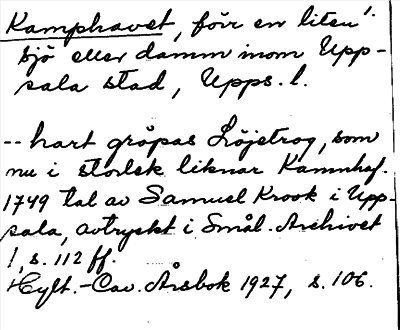 Kamphavet, förr en liten
sjö eller damm inom Upp-
sala stad, Upps. l.
-- hart gröpas Löjetrog, som
nu i storlek liknar Kammhaf.
1749 tal av Samuel Krook i Upp-
sala, avtryckt i Smål. Archivet
1, s. 112 ff.
Hylt.-Cav. Årsbok 1927, s. 106.